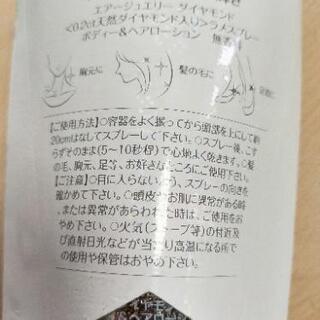 エアージュエリー ダイヤモンド
<0.2ct天然ダイヤモンド入り>ラメスプレー
ボディー&ヘアローション 無香料
胸元に
髪の毛に
足首に
【ご使用方法】○容器をよく振ってから頭部を上にして約
20cmはなしてスプレーして下さい。○スプレー後、こす
らずそのまま(5〜10秒程)で心地よく乾きます。○髪
の毛、胸元、足等、お好きなところにご使用下さい。
【ご注意】○目に入らないよう、スプレーの向きを
確かめて下さい。○頭皮やお肌に異常がある時
、または異常があらわれた時は、ご使用をお
やめ下さい。○火気(ストーブ等)の付近及
び直射日光などが当たり高温になる所で
の使用や保管はおやめ下さい。
イヤモン
ヘアローショ